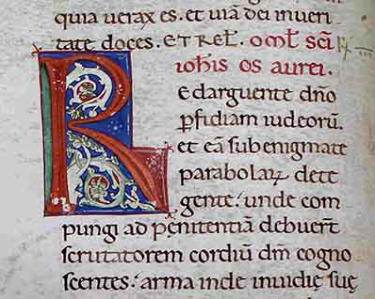 quia uerax es. et uiā dei in ueri
tate doces. ET REL̄. omł. sc̄i
ioh̄is os aurei.
Redarguente dn̄o
ꝑfidiam iudeorū.
et eā sub enigmate
parabolaꝝ dete
gente: unde com
pungi ad penitentiā debuer̄t
scrutatorem cordiū dm̄ cogno
scentes: arma inde inuidię suę